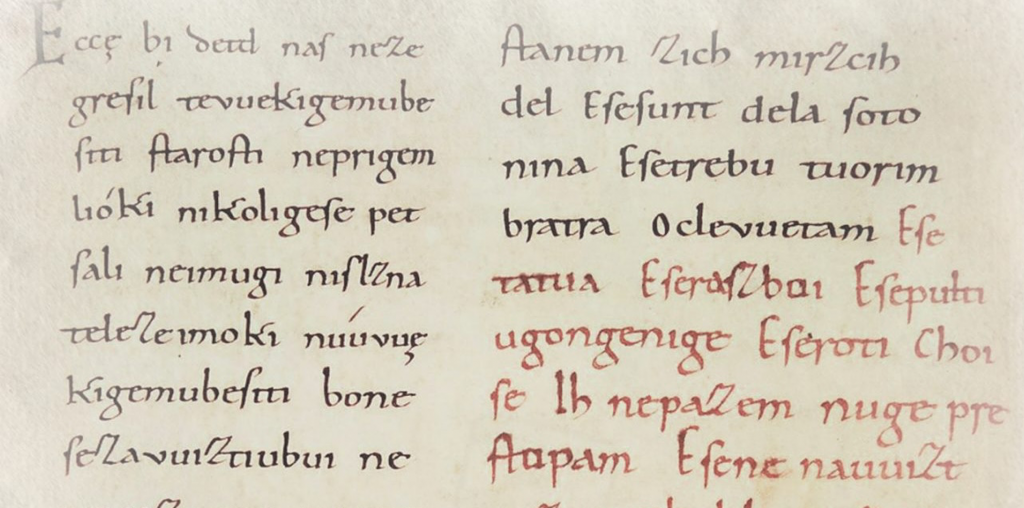 Eccę bi detd naſ neze
greſil tevuekigemube
ſiti ſtaroſti neprigem
lióki nikoligeſe pet
ſali neimugi niſlzna
teleze imoki nuúvuę
kigemubeſiti bone
ſezavuiztiubui ne
ſtanem zich mirzcih
del Eſeſunt dela ſoto
nina Eſetrebu tuorim
bratra Oclevuetam Eſe
tatua Eſeraſzboi Eſepulti
ugongenige Eſeroti Choi
ſe Ih nepazem nuge pre
ſtopam Eſene nauuizt